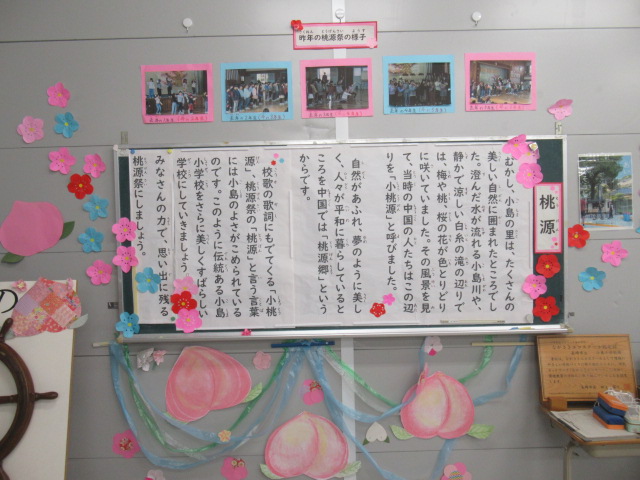 昨年の桃源祭の様子
桃源
むかし、小島の里は、たくさんの
美しい自然に囲まれたところでし
た。澄んだ水が流れる小島川や、
静かで涼しい白糸の滝の辺りで
は、梅や桃、桜の花が色とりどり
に咲いていました。その風景を見
て、当時の中国の人たちはこの辺
りを「小桃源」と呼びました。
自然があふれ、夢のように美し
く、人々が平和に暮らしていると
ころを中国では「桃源郷」という
からです。
校歌の歌詞にもでてくる「小桃
源」、桃源祭の「桃源」と言う言葉
には小島のよさがこめられている
のです。このように伝統ある小島
小学校をさらに美しくすばらしい
学校にしていきましょう。
みなさんの力で、思い出に残る
桃源祭にしましょう。